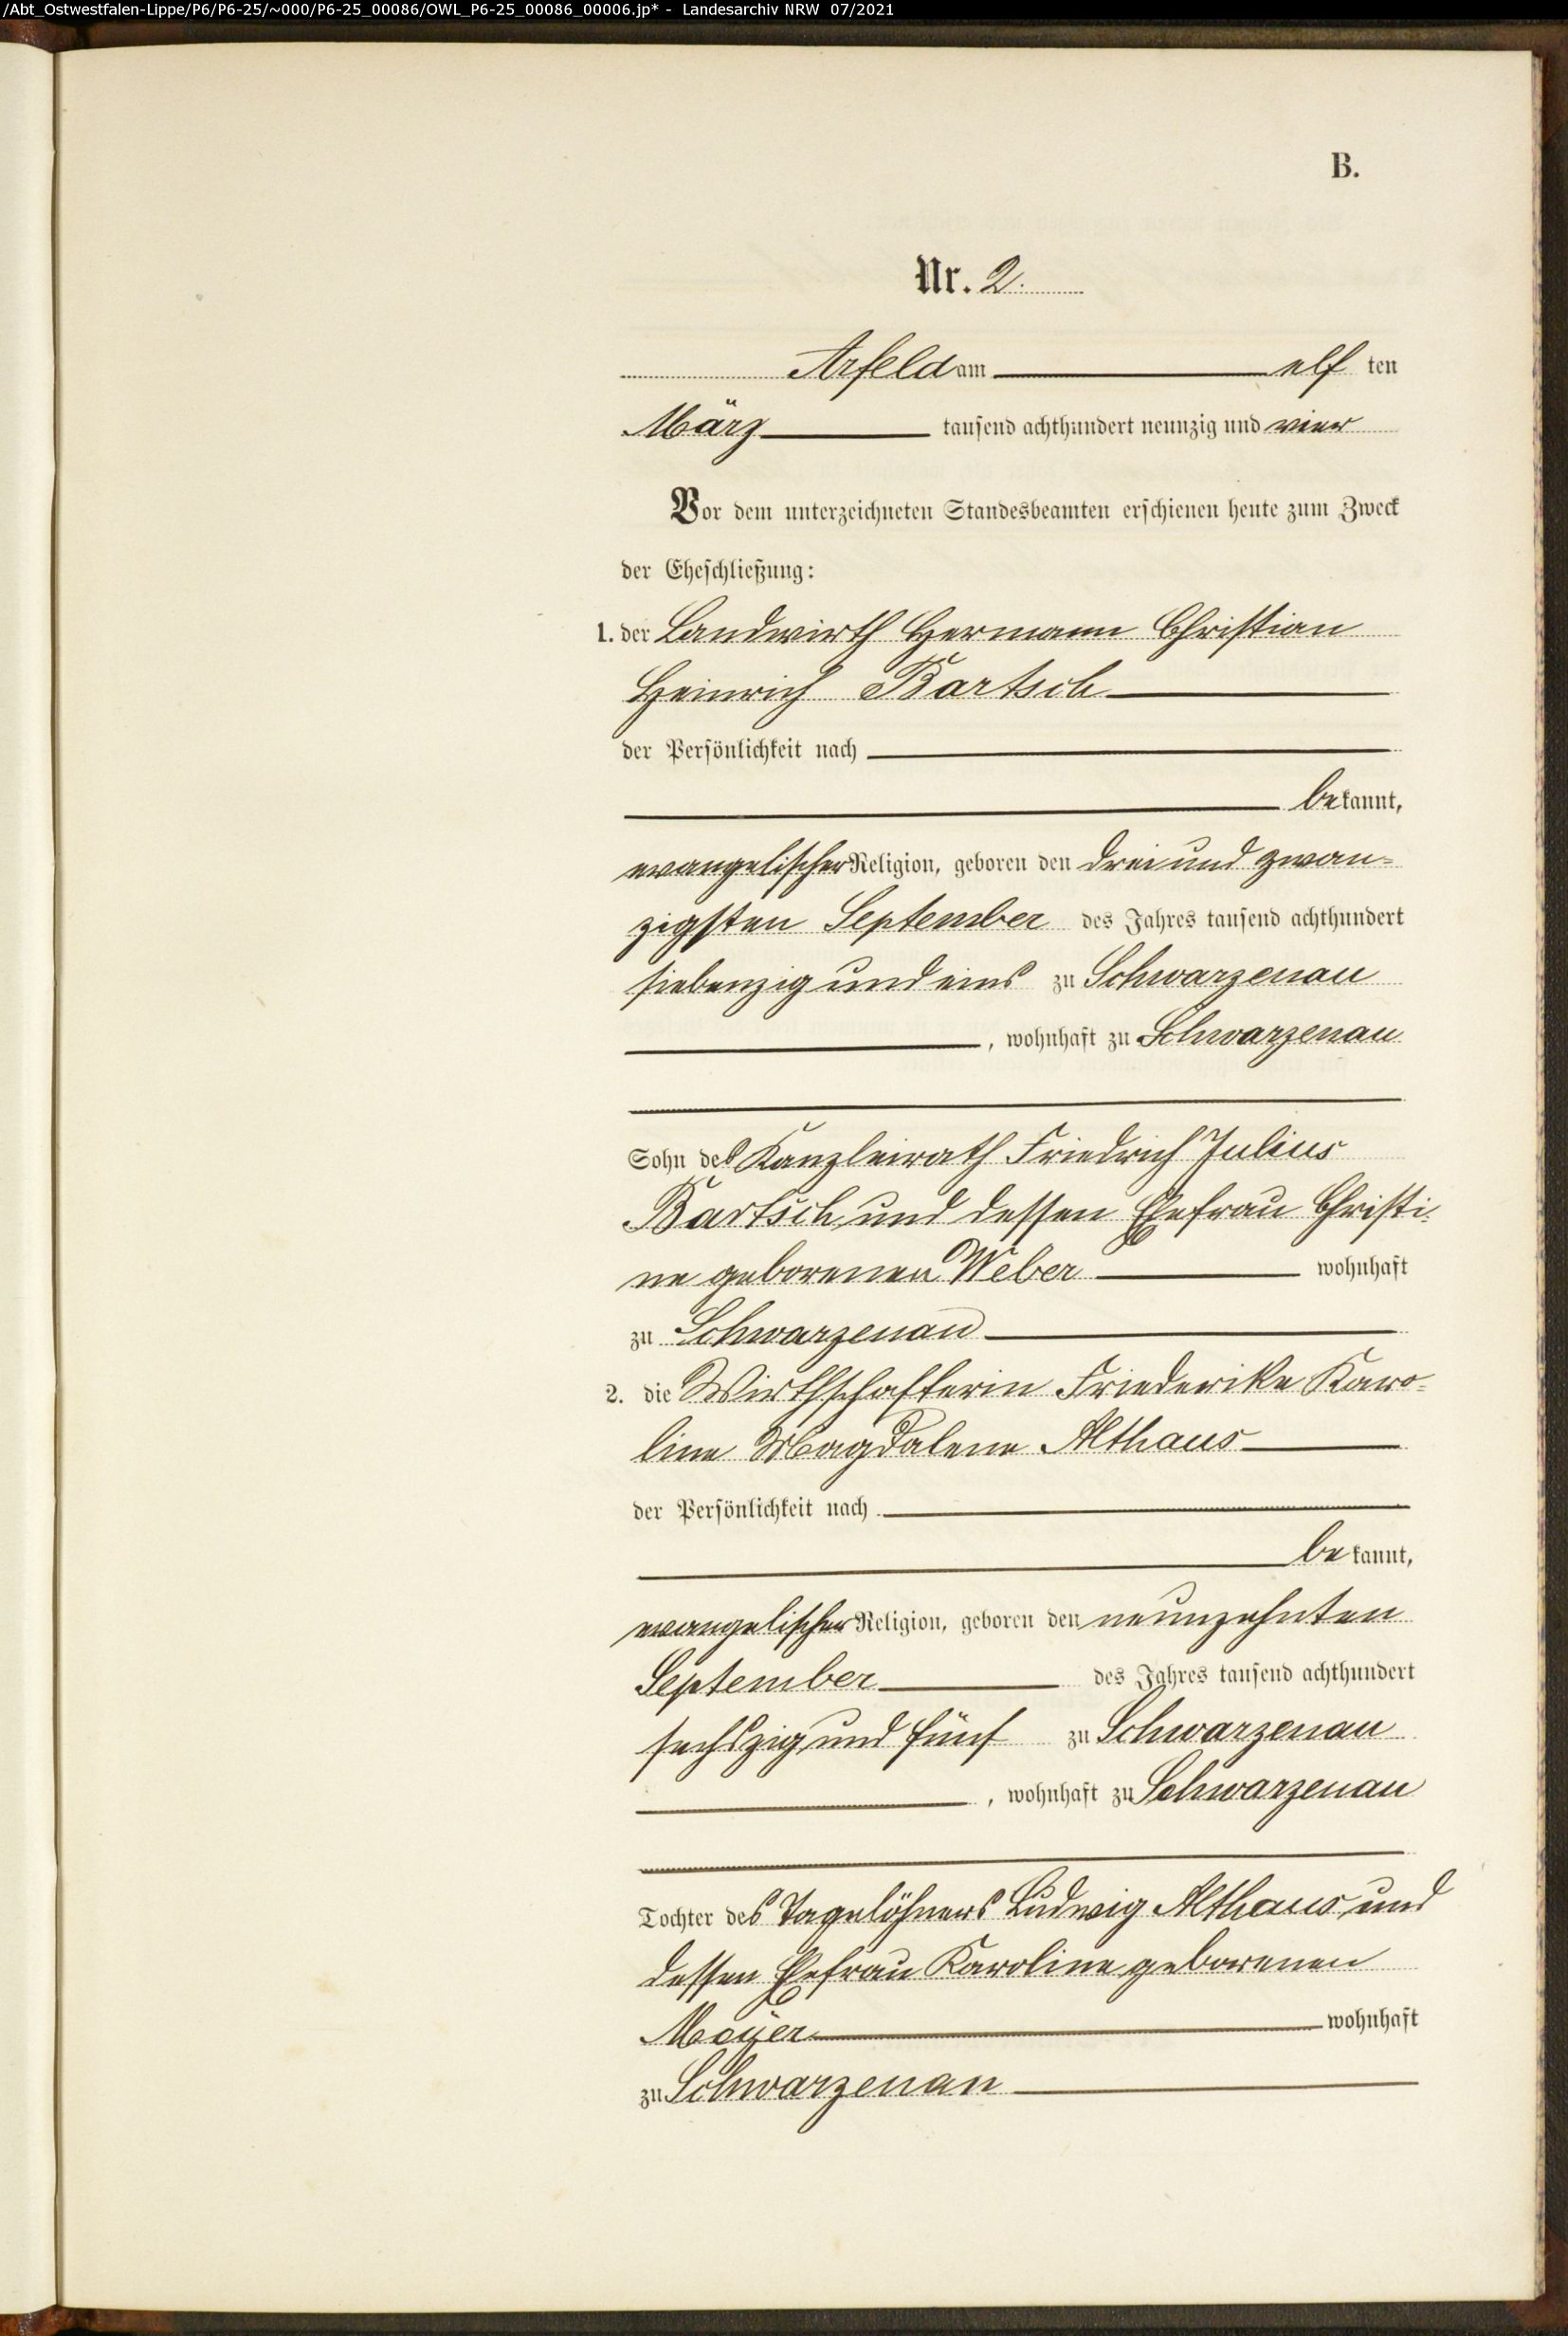 /Abt_Ostwestfalen-Lippe/P6/P6-25/~000/P6-25_00086/OWL_P6-25_00086_00006.jp* - Landesarchiv NRW 07/2021
B.
Nr. 2.
Arfeld am elf ten
März tausend achthundert neunzig und vier
Vor dem unterzeichneten Standesbeamten erschienen heute zum Zweck
der Eheschließung:
1. der Landwirth Hermann Christian
Heinrich Bartsch
der Persönlichkeit nach
bekannt,
evangelischer Religion, geboren den drei und zwan-
zigsten September des Jahres tausend achthundert
siebenzig und eins zu Schwarzenau
, wohnhaft zu Schwarzenau
Sohn des Kanzleirath Friedrich Julius
Bartsch und dessen Ehefrau Christi-
ne geborenen Weber wohnhaft
zu Schwarzenau
2. die Wirthschafterin Friederike Karo-
line Magdalene Althaus
der Persönlichkeit nach
bekannt,
evangelischer Religion, geboren den neunzehnten
September des Jahres tausend achthundert
sechszig und fünf zu Schwarzenau
, wohnhaft zu Schwarzenau
Tochter des Tagelöhners Ludwig Althaus und
dessen Ehefrau Karoline geborenen
wohnhaft
zu Schwarzenau